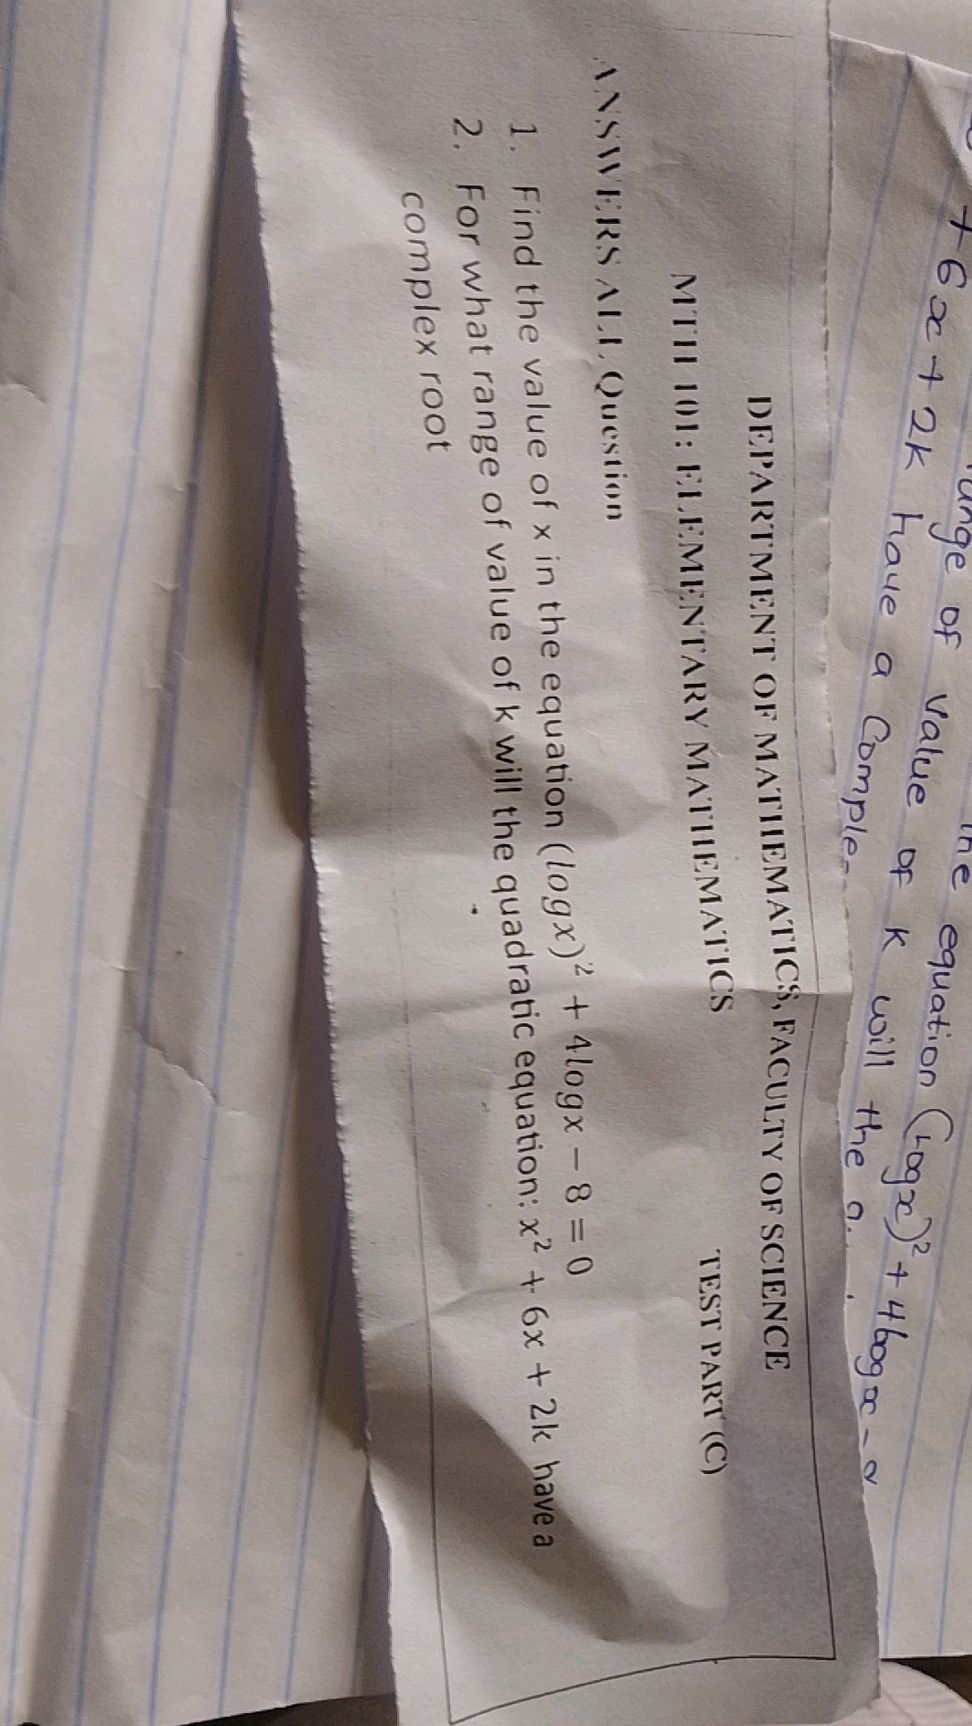 DEPARTMENT OF MATHEMATICS, FACULTY OF SCIENCE
MTH 101: ELEMENTARY MATHEMATICS TEST PART (C)
ANSWERS ALL Question
1. Find the value of x in the equation (logx)² + 4logx − 8 = 0
2. For what range of value of k will the quadratic equation: x² + 6x + 2k have a
complex root
the equation (logx)² + 4logx -
range of value of k will the
+ 6x + 2k have a